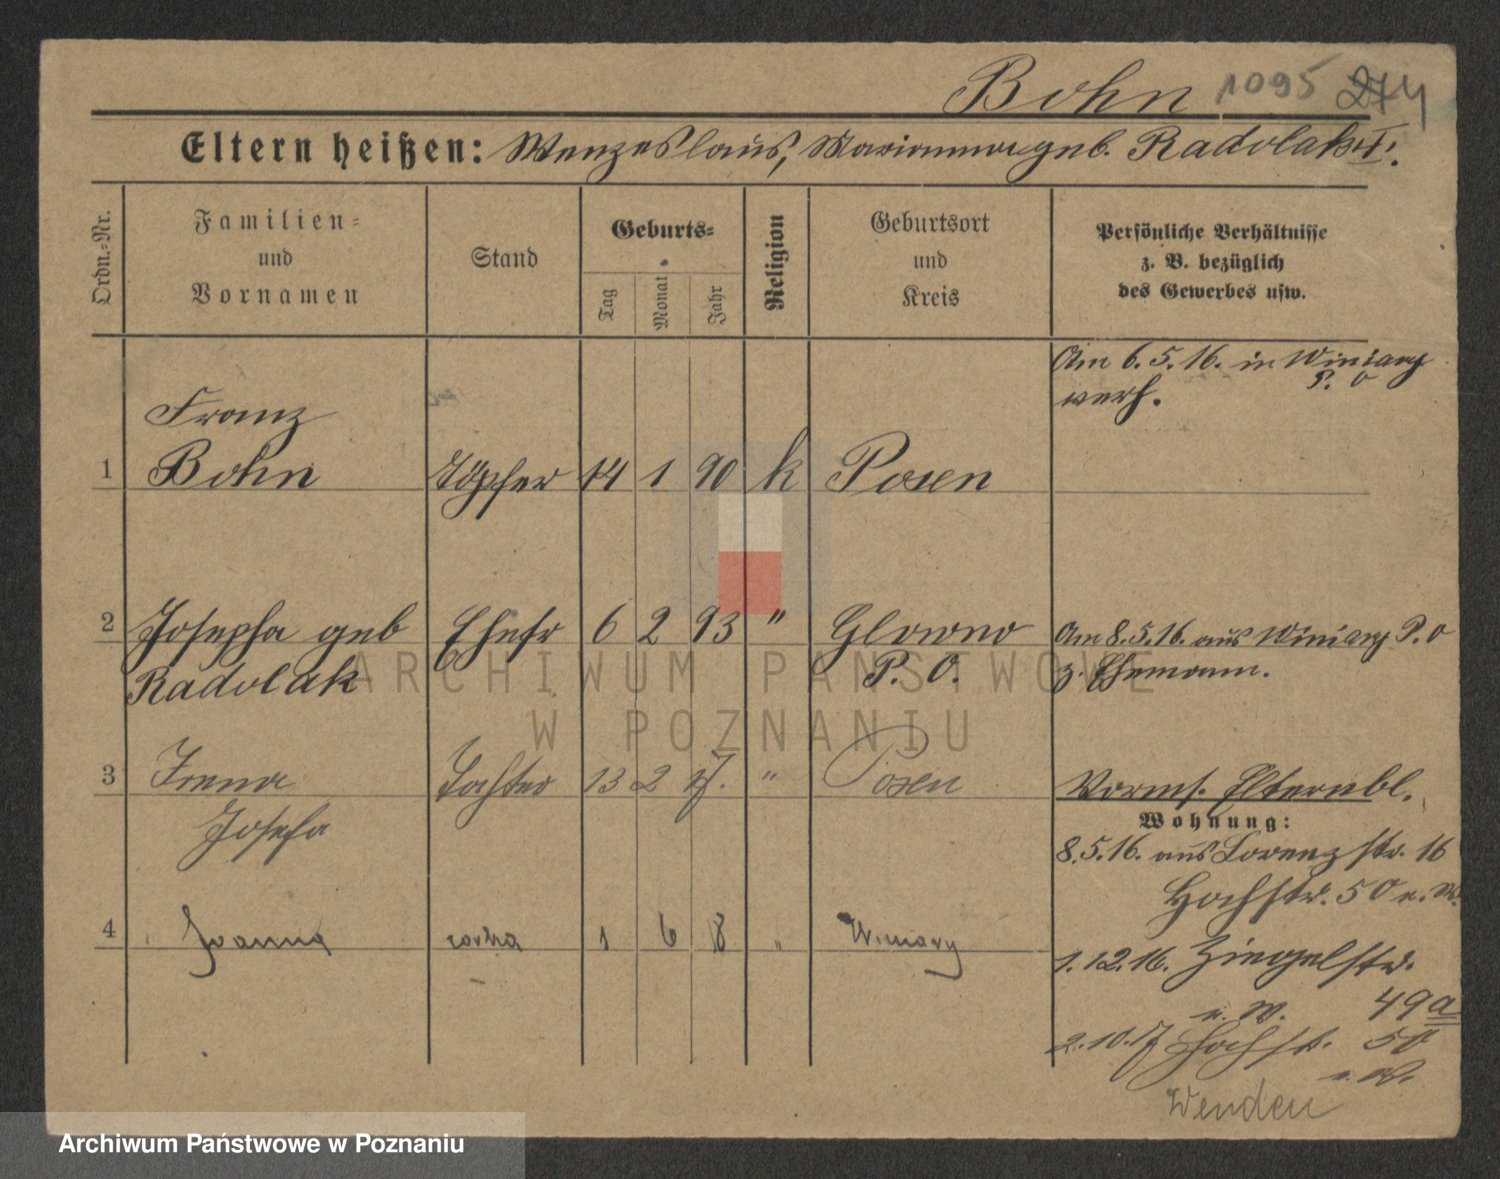 Bohn 1095 274
Eltern heißen: Wenzeslaus, Marianna geb. Radolak
Ordn.=Nr.
Familien=
und
Vornamen
Stand
Geburts=
Tag
Monat
Jahr
Religion
Geburtsort
und
Kreis
Persönliche Verhältnisse
z. B. bezüglich
des Gewerbes usw.
Am 6.5.16. in Winiary
P. O
verh.
Franz
1 Bohn Töpfer 14 1 90 k Posen
2 Josepha geb Ehefr 6 2 93 " Glowno Am 8.5.16. aus Winiary P. O
Radolak P. O. z. Ehemann.
3 Irena Tochter 13 2 17. " Posen
Josefa
Vorms. Elternbl.
Wohnung:
8.5.16. aus Lorenzstr. 16
Hochstr. 50 n. W.
4 Joanna corka 1 6 18 " Winiary
1.12.16. Ziegelstr.
n. W. 49a
2.10.17 Hochstr. 50
n. W.
Wenden
ARCHIWUM PAŃSTWOWE
W POZNANIU
Archiwum Państwowe w Poznaniu